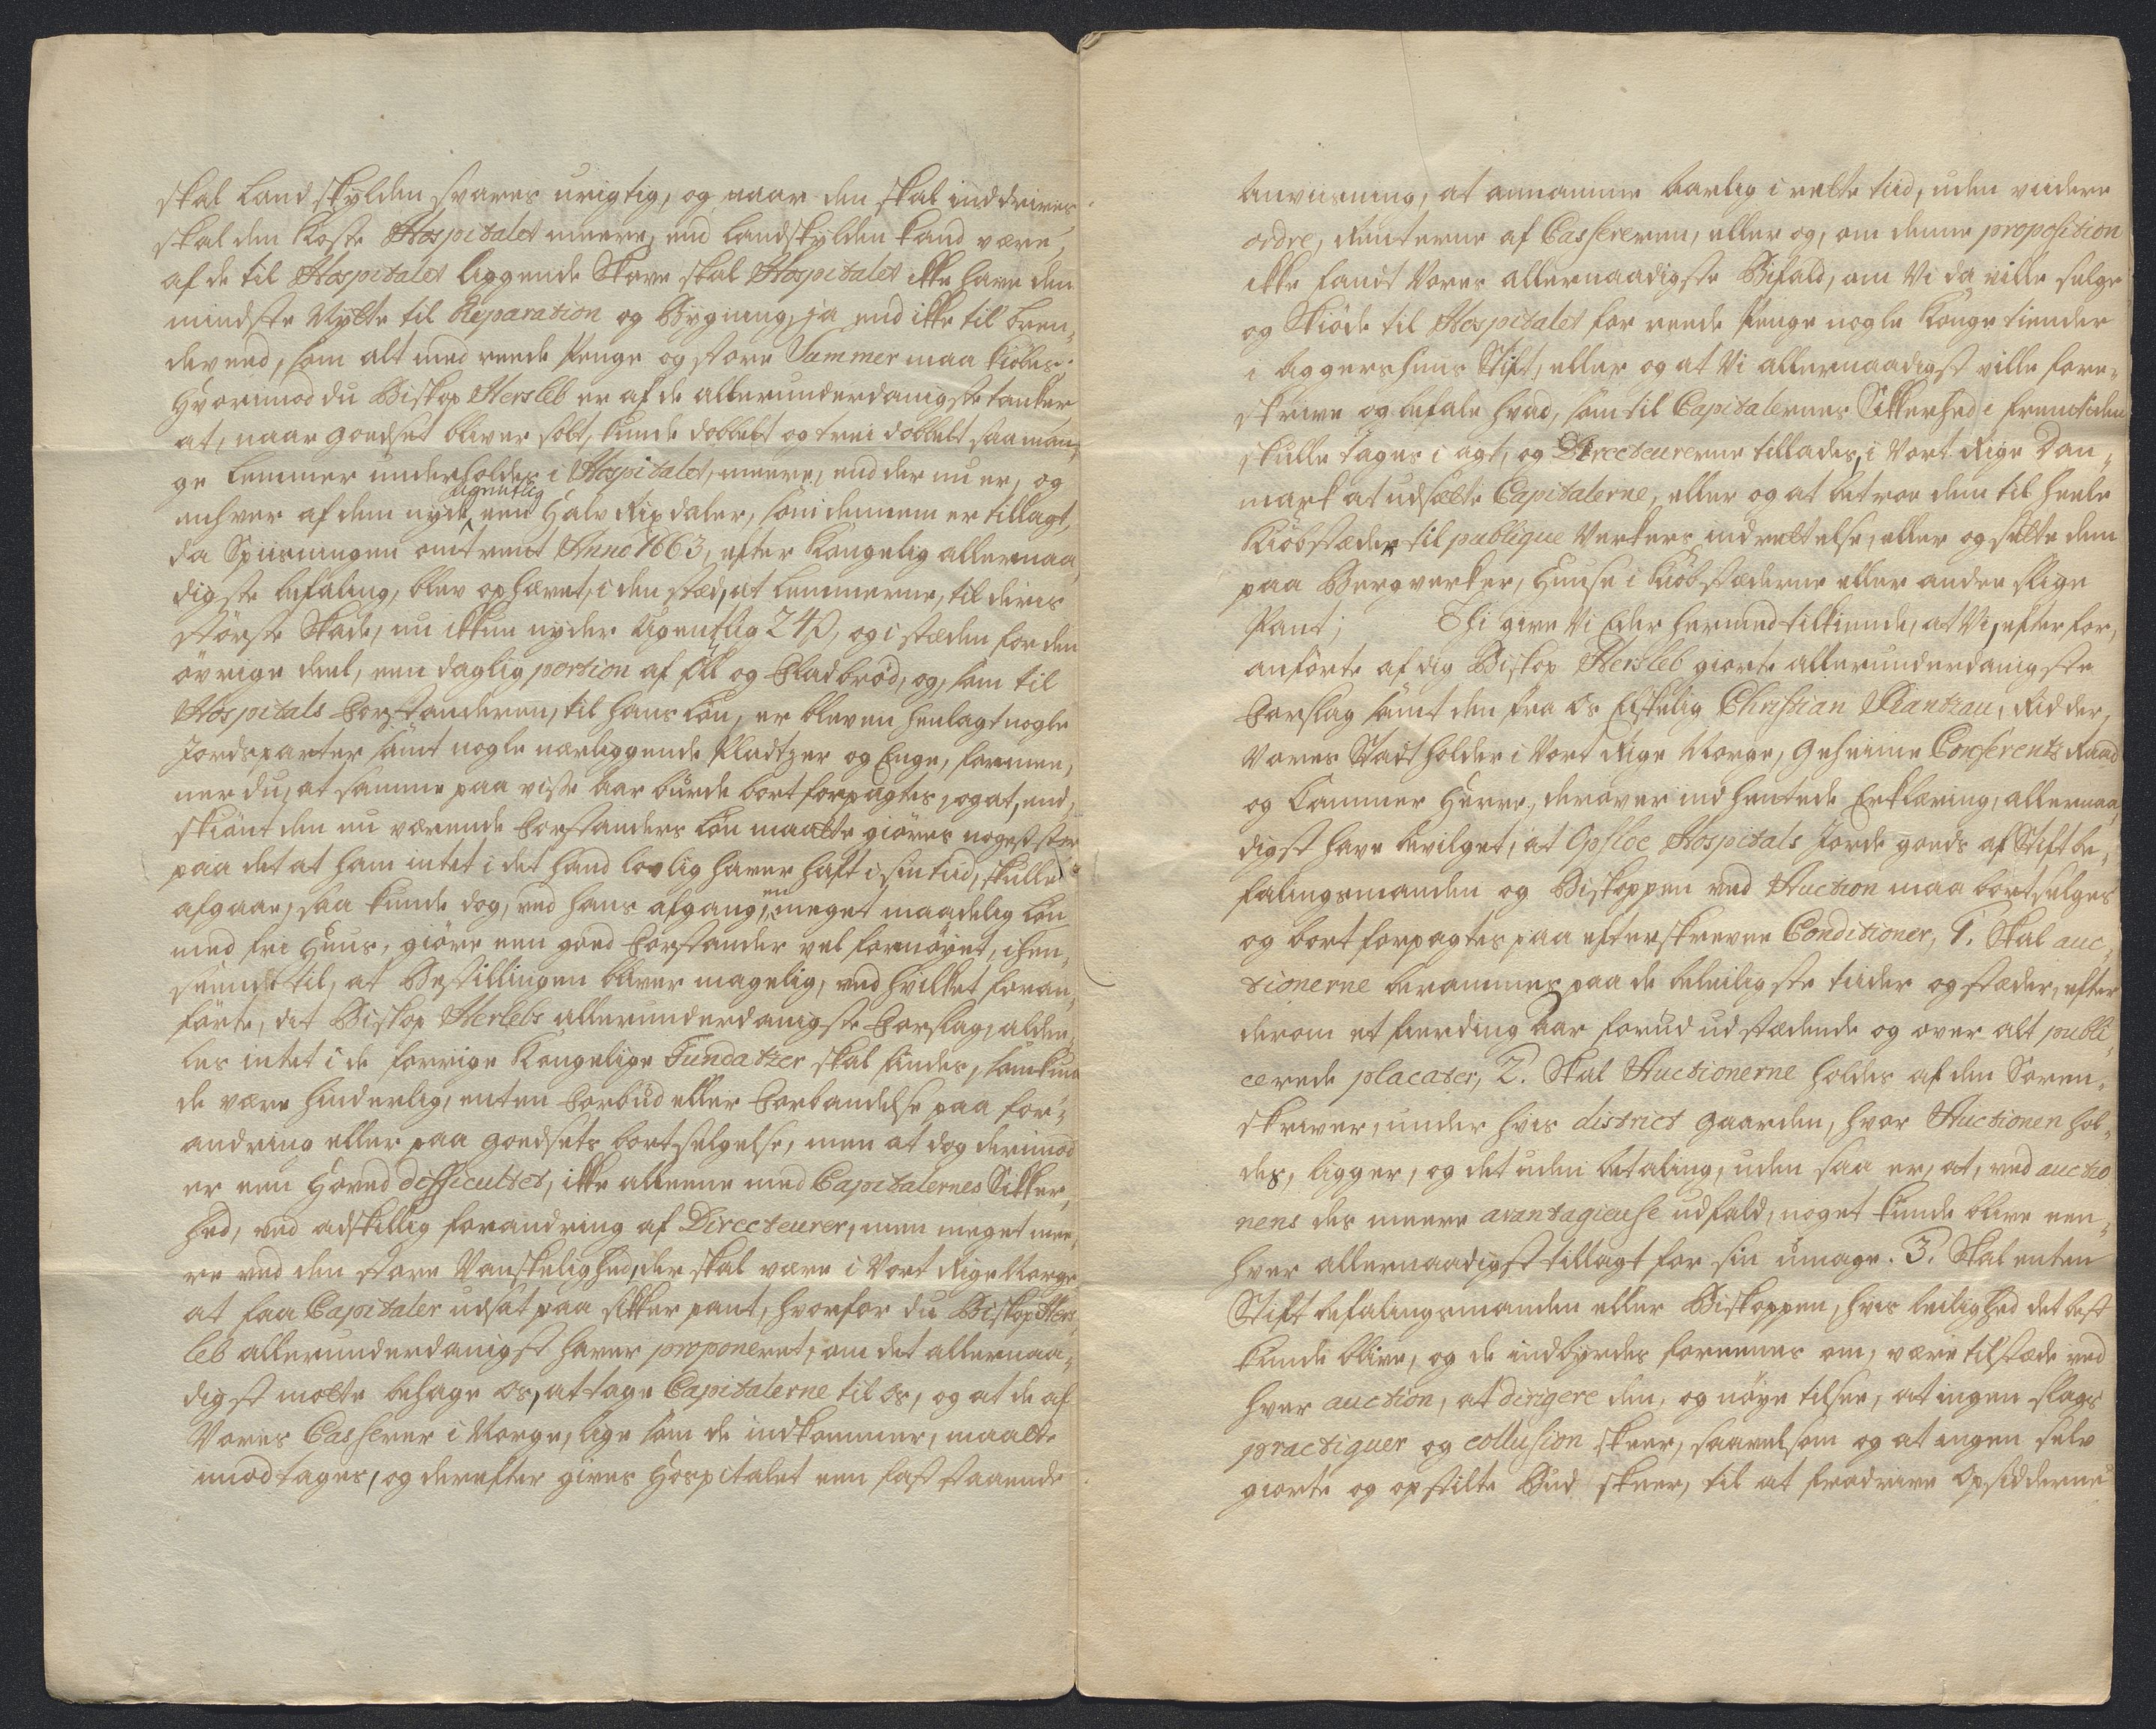 skal Landskylden svares urigtig, og naar den skal inddrives
skal den koste Hospitalet meere, end Landskylden kand være,
af de til Hospitalet liggende Skove skal Hospitalet ikke have den
mindste Nytte til Reparation og Bygning, ja end ikke til bren-
deveed, som alt med reede Penge og store Summer maa kiöbes.
Hvorimod du Biskop Hersleb er af de allerunderdanigste tanker
at, naar goedset bliver solt, kunde dobbelt og trei dobbelt saa man-
ge Lemmer underholdes i Hospitalet, meere, end der nu er, og
ugentlig
enhver af dem nyde een Halv Rixdaler, som dennem er tillagt,
da Spiisningen omtrent Anno 1663, efter Kongelig allernaa-
digste befaling, blev ophævet, i den stæd, at Lemmerne, til deris
störste Skade, nu ikkun nyder Ugentlig 24 ß, og i stæden for den
övrige deel, een daglig portion af Öll og Fladbröd, og, som til
Hospitals Forstanderen, til hans Lön, er bleven henlagt nogle
Jordsparter samt nogle nærliggende Pladtzer og Enge, formee-
ner du, at samme paa visse Aar burde bortforpagtes, og at, end-
skiönt den nu værende Forstanders Lön maatte giöres noget stör
paa det at ham intet i det hand lovlig haver haft i sin tiid, skulle
afgaae, saa kunde dog, ved hans afgang, en meget maadelig Lön
med fri Huus, giöre een goed Forstander vel fornöyet, i hen-
seende til, at Bestillingen bliver magelig, ved hvilket foran-
förte, dit Biskop Herlebs allerunderdanigste Forslag, aldee-
les intet i de forrige Kongelige Fundatzer skal findes, som kun-
de være hinderlig, enten Forbud eller Forbandelse paa for-
andring eller paa goedsets bortselgelse, men at dog derimod
er een Hoved difficultet, ikke alleene med Capitalernes Sikker-
hed, ved adskillig forandring af Directeurer, men meget mee-
re ved den store Vanskelighed, der skal være i Vort Rige Norge
at faa Capitaler udsat paa sikker pant, hvorfor du Biskop Hers-
leb allerunderdanigst haver proponeret, om det allernaa-
digst motte behage Os, at tage Capitalerne til Os, og at de af
Vores Casserer i Norge, lige som de indkommer, maatte
imodtages, og derefter gives Hospitalet een fast staaende
Anviisning, at annamme Aarlig i rette tiid, uden viidere
ordre, Renterne af Casereren, eller og, om denne proposition
ikke fandt Vores allernaadigste Bifald, om Vi da ville selge
og Skiöde til Hospitalet for reede Penge nogle Konge tiender
i Aggershuus Stift, eller og at Vi allernaadigst ville fore-
skrive og befale hvad, som til Capitalernes Sikkerhed i fremtiden
skulle tages i agt, og Directeurerne tillades, i Vort Rige Dan-
mark at udsætte Capitalerne, eller og at betroe dem til heele
Kiöbstæder til publique Verkers indrettelse, eller og sætte dem
paa Bergverker, Huuse i Kiöbstæderne eller andre slige
Pant; Thi give Vi Eder hermed tilkiende, at Vi, efter for-
anförte af dig Biskop Hersleb giorte allerunderdanigste
Forslag samt den fra Os Elskelig Christian Rantzau, Ridder,
Vores Stadtholder i Vort Rige Norge, Geheime Conferents Raad
og Cammer Herre, derover indhentede Erklæring, allernaa-
digst have bevilget, at Opsloe Hospitals Jorde goeds af Stiftbe-
falingsmanden og Biskoppen ved Auction maa bortselges
og bortforpagtes paa efterskrevne Conditioner, 1. Skal auc-
tionerne berammes paa de beleiligste tiider og stæder, efter
derom et fierding Aar forud udstædende og over alt publi-
cerede placater, 2. Skal Auctionerne holdes af den Soren-
skriver, under hvis district gaarden, hvor Auctionen hol-
des, ligger, og det uden betaling, uden saa er, at, ved auctio
nens des meere avantagieuse udfald, noget kunde blive een-
hver allernaadigst tillagt for sin umage. 3. Skal enten
Stiftbefalingsmanden eller Biskoppen, hvis leilighed det best
kunde blive, og de indbyrdes foreenes om, være tilstæde ved
hver auction, at dirigere den, og nöye tilsee, at ingen slags
practiquer og collusion skeer, saavelsom og at ingen selv
giorte og opstilte Bud skeer, til at fradrive Opsidderne